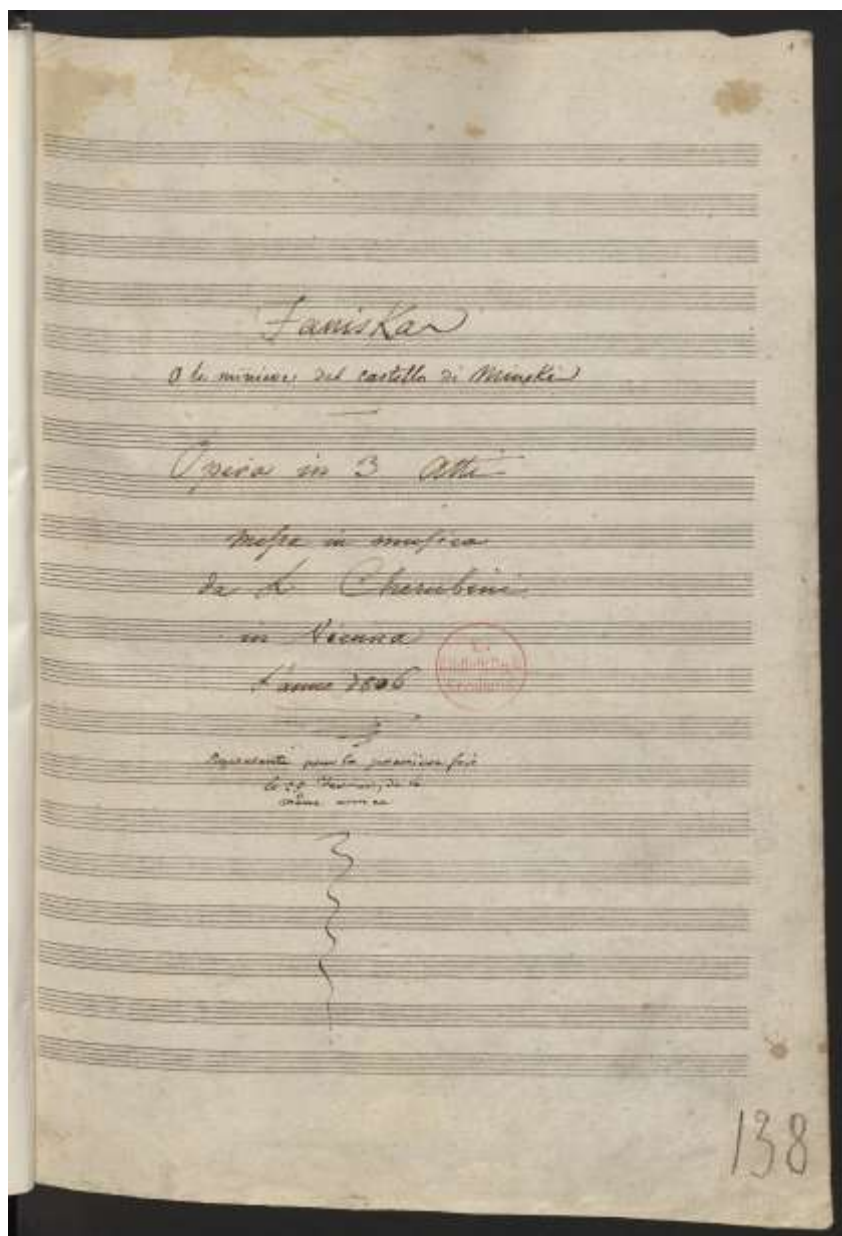 1
Faniska
O le miniere del castello di Minski
Opera in 3 Atti
messa in musica
da L Cherubini
in Vienna
l'anno 1806
Ex
Bibliotheca
Représenté pour la première fois
le 25 Fevrier, de la
même année
138